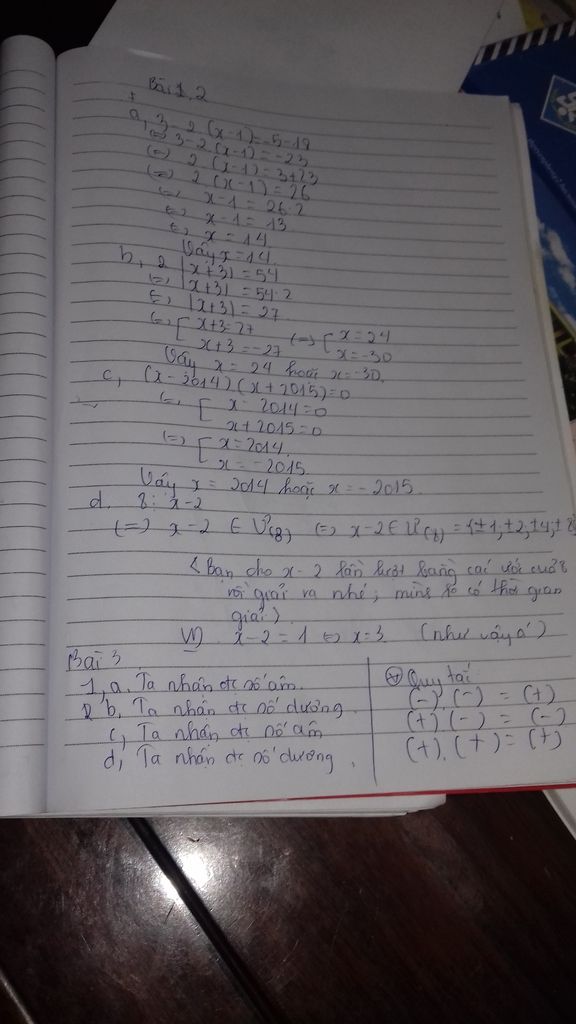 Bài 1,2
a, 3 - 2 (x-1) = -5-18
(=) 3-2(x-1) = -23
(=) 2 (x-1) = 3+23
(=) 2 (x-1) = 26
(=) x-1 = 26:2
(=) x-1 = 13
(=) x = 14
Vậy x = 14.
b, 2 |x+3| = 54
(=) |x+3| = 54:2
(=) |x+3| = 27
(=) [ x+3=27 (=) [ x = 24
x+3 = -27 x = -30
Vậy x = 24 hoặc x = -30.
c, (x-2014)(x+2015)=0
(=) [ x-2014=0
x+2015=0
(=) [ x=2014
x = -2015
Vậy x = 2014 hoặc x = -2015.
d. 8: x-2
(=) x-2 ∈ Ư(8) (=) x-2 ∈ Ư(8) = {±1, ±2, ±4, ±8
(Bạn cho x-2 lần lượt bằng các ước của 8
rồi giải ra nhé, mình ko có thời gian
giải)
VD x-2 = 1 (=) x=3 (như vậy á)
Bài 3
1, a. Ta nhận đc số âm.
b, Ta nhận đc số dương.
c, Ta nhận đc số âm
d, Ta nhận đc số dương.
Quy tắc
(-).(-) = (+)
(+)(-) = (-)
(+).(+) = (+)